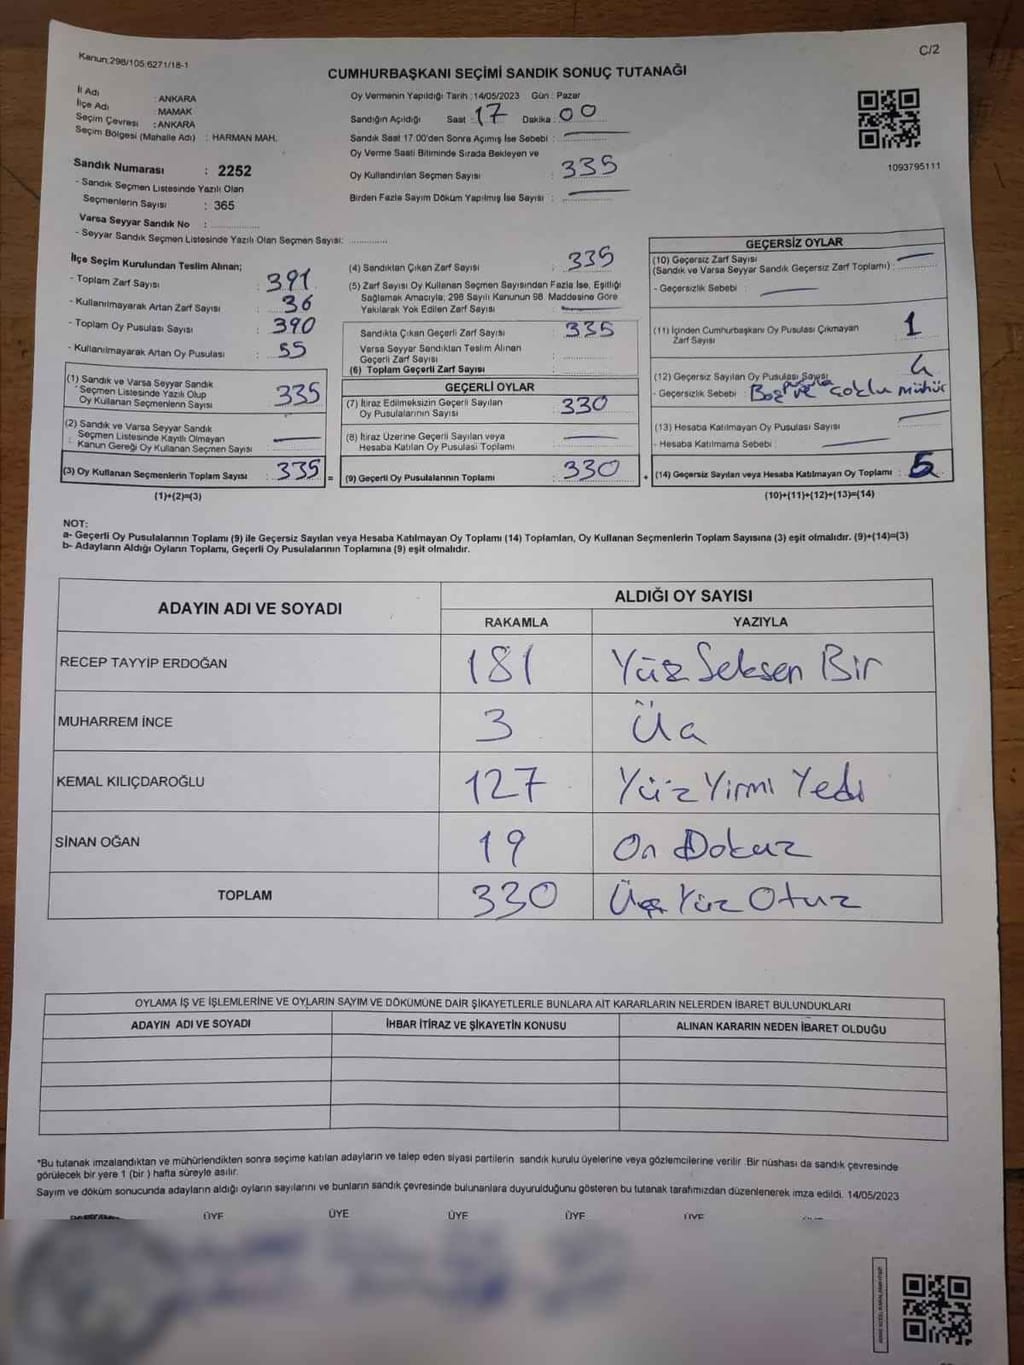 Kanun:298/105;6271/18-1
C/2
CUMHURBAŞKANI SEÇİMİ SANDIK SONUÇ TUTANAĞI
İl Adı : ANKARA
İlçe Adı : MAMAK
Seçim Çevresi : ANKARA
Seçim Bölgesi (Mahalle Adı) : HARMAN MAH.
Sandık Numarası : 2252
- Sandık Seçmen Listesinde Yazılı Olan
Seçmenlerin Sayısı : 365
Varsa Seyyar Sandık No :
- Seyyar Sandık Seçmen Listesinde Yazılı Olan Seçmen Sayısı:
Oy Vermenin Yapıldığı Tarih : 14/05/2023 Gün : Pazar
Sandığın Açıldığı Saat : 17 Dakika : 00
Sandık Saat 17.00'den Sonra Açımış İse Sebebi :
Oy Verme Saati Bitiminde Sırada Bekleyen ve
Oy Kullandırılan Seçmen Sayısı : 335
Birden Fazla Sayım Döküm Yapılmış İse Sayısı :
1093795111
İlçe Seçim Kurulundan Teslim Alınan;
- Toplam Zarf Sayısı : 391
- Kullanılmayarak Artan Zarf Sayısı : 36
- Toplam Oy Pusulası Sayısı : 390
- Kullanılmayarak Artan Oy Pusulası : 55
(1) Sandık ve Varsa Seyyar Sandık
Seçmen Listesinde Yazılı Olup
Oy Kullanan Seçmenlerin Sayısı : 335
(2) Sandık ve Varsa Seyyar Sandık
Seçmen Listesinde Kayıtlı Olmayan
Kanun Gereği Oy Kullanan Seçmen Sayısı
(3) Oy Kullanan Seçmenlerin Toplam Sayısı : 335 =
(1)+(2)=(3)
(4) Sandıktan Çıkan Zarf Sayısı : 335
(5) Zarf Sayısı Oy Kullanan Seçmen Sayısından Fazla İse, Eşitliği
Sağlamak Amacıyla; 298 Sayılı Kanunun 98. Maddesine Göre
Yakılarak Yok Edilen Zarf Sayısı :
Sandıkta Çıkan Geçerli Zarf Sayısı : 335
Varsa Seyyar Sandıktan Teslim Alınan
Geçerli Zarf Sayısı :
(6) Toplam Geçerli Zarf Sayısı :
GEÇERLİ OYLAR
(7) İtiraz Edilmeksizin Geçerli Sayılan
Oy Pusulalarının Sayısı : 330
(8) İtiraz Üzerine Geçerli Sayılan veya
Hesaba Katılan Oy Pusulası Toplamı :
(9) Geçerli Oy Pusulalarının Toplamı : 330 +
GEÇERSİZ OYLAR
(10) Geçersiz Zarf Sayısı
(Sandık ve Varsa Seyyar Sandık Geçersiz Zarf Toplamı) :
- Geçersizlik Sebebi :
(11) İçinden Cumhurbaşkanı Oy Pusulası Çıkmayan
Zarf Sayısı : 1
(12) Geçersiz Sayılan Oy Pusulası Sayısı : 4
- Geçersizlik Sebebi : Boş ve çoklu mühür
(13) Hesaba Katılmayan Oy Pusulası Sayısı :
- Hesaba Katılmama Sebebi :
(14) Geçersiz Sayılan veya Hesaba Katılmayan Oy Toplamı : 5
(10)+(11)+(12)+(13)=(14)
NOT:
a- Geçerli Oy Pusulalarının Toplamı (9) ile Geçersiz Sayılan veya Hesaba Katılmayan Oy Toplamı (14) Toplamları, Oy Kullanan Seçmenlerin Toplam Sayısına (3) eşit olmalıdır. (9)+(14)=(3)
b- Adayların Aldığı Oyların Toplamı, Geçerli Oy Pusulalarının Toplamına (9) eşit olmalıdır.
ADAYIN ADI VE SOYADI ALDIĞI OY SAYISI
RAKAMLA YAZIYLA
RECEP TAYYİP ERDOĞAN 181 Yüz Seksen Bir
MUHARREM İNCE 3 Üç
KEMAL KILIÇDAROĞLU 127 Yüz Yirmi Yedi
SİNAN OĞAN 19 On Dokuz
TOPLAM 330 Üç Yüz Otuz
OYLAMA İŞ VE İŞLEMLERİNE VE OYLARIN SAYIM VE DÖKÜMÜNE DAİR ŞİKAYETLERLE BUNLARA AİT KARARLARIN NELERDEN İBARET BULUNDUKLARI
ADAYIN ADI VE SOYADI İHBAR İTİRAZ VE ŞİKAYETİN KONUSU ALINAN KARARIN NEDEN İBARET OLDUĞU
*Bu tutanak imzalandıktan ve mühürlendikten sonra seçime katılan adayların ve talep eden siyasi partilerin sandık kurulu üyelerine veya gözlemcilerine verilir. Bir nüshası da sandık çevresinde
görülecek bir yere 1 (bir ) hafta süreyle asılır.
Sayım ve döküm sonucunda adayların aldığı oyların sayılarını ve bunların sandık çevresinde bulunanlara duyurulduğunu gösteren bu tutanak tarafımızdan düzenlenerek imza edildi. 14/05/2023
ÜYE ÜYE ÜYE ÜYE ÜYE